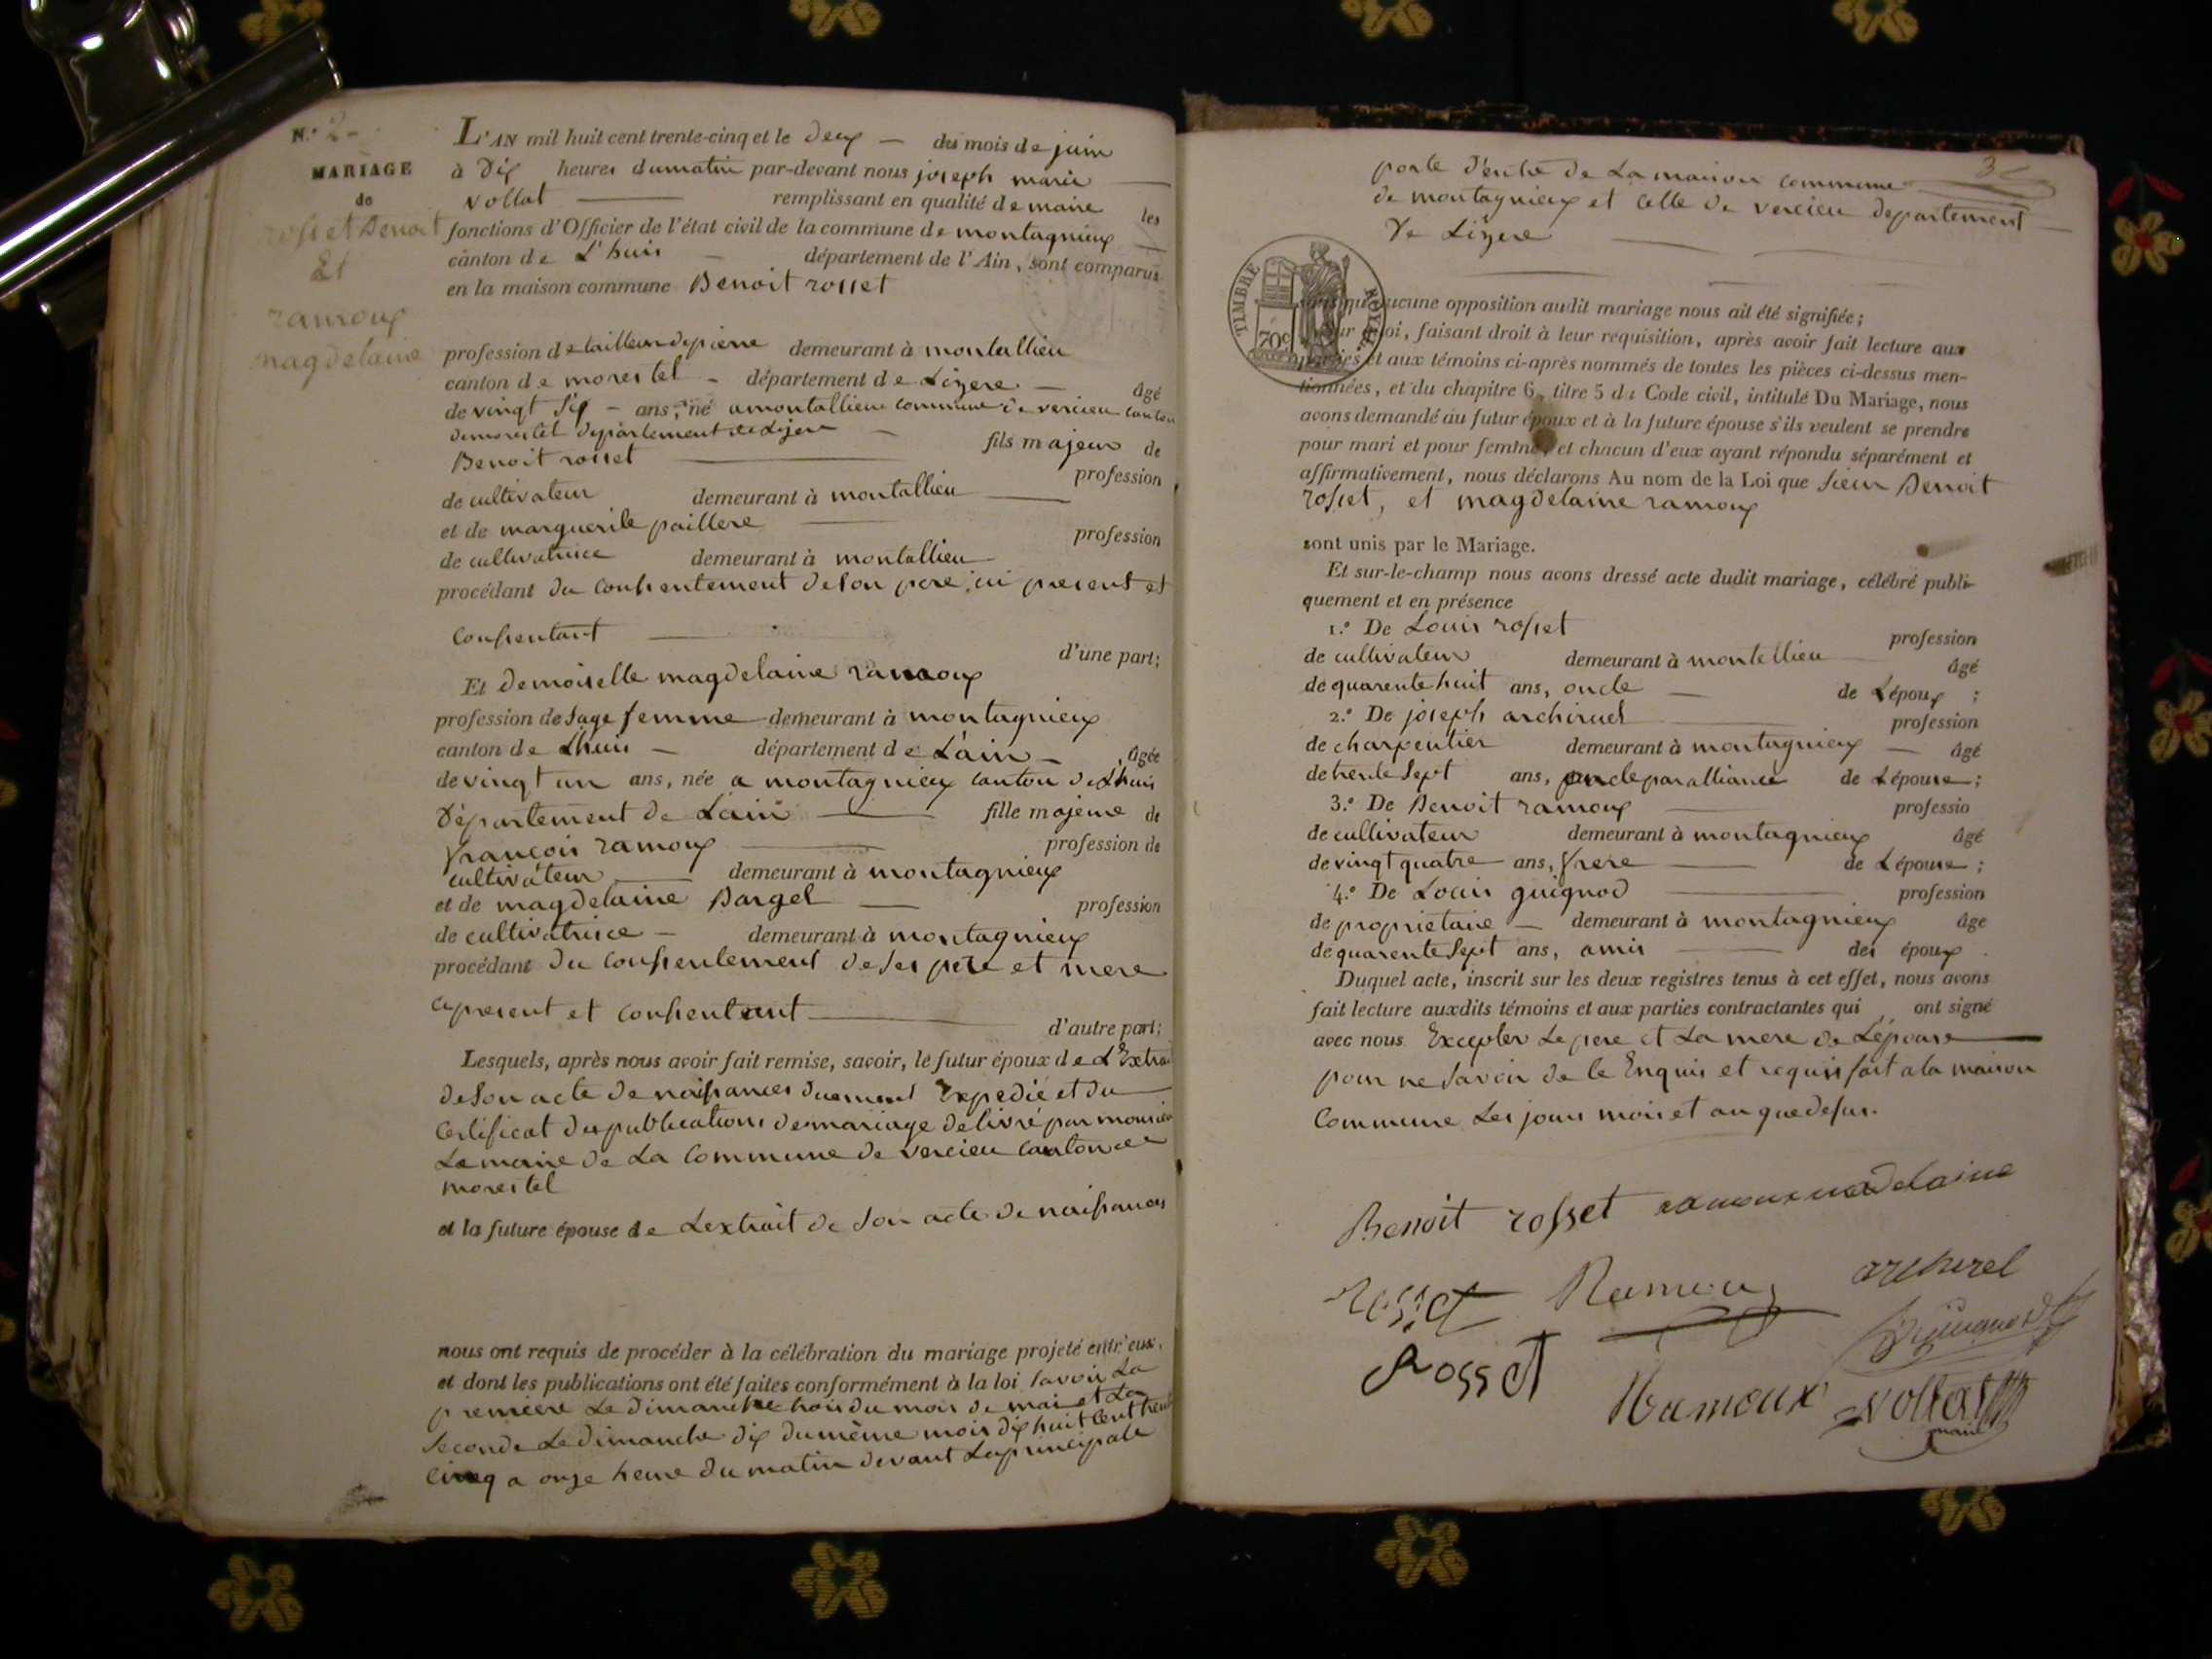 N.° 2
MARIAGE
de
rosset Benoit
Et
ramoux
magdelaine
L'AN mil huit cent trente-cinq et le deux du mois de juin
à dix heures du matin par-devant nous joseph marie
vollat remplissant en qualité de maire les
fonctions d'Officier de l'état civil de la commune de montagnieux
canton de L'huis département de l'Ain, sont comparus
en la maison commune Benoit rosset
profession de tailleur de pierre demeurant à montallieu
canton de morestel département de Lizere âgé
de vingt six ans, né a montallieu commune de vercieu canton
de morestel departement de Lizere fils majeur de
Benoit rosset profession
de cultivateur demeurant à montallieu
et de marguerite paillere profession
de cultivatrice demeurant à montallieu
procédant du consentement de son pere ici present et
consentant
d'une part;
Et demoiselle magdelaine ramoux
profession de sage femme demeurant à montagnieux
canton de Lhuis département de L'ain âgée
de vingt un ans, née a montagnieux canton de Lhuis
Département de Lain fille majeure de
françois ramoux profession de
cultivateur demeurant à montagnieux
et de magdelaine Bargel profession
de cultivatrice demeurant à montagnieux
procédant du consentement de ses pere et mere
a present et consentant
d'autre part;
Lesquels, après nous avoir fait remise, savoir, le futur époux de L'Extrai
de son acte de naissances duement Expedié et du
Certificat des publications de mariage délivré par monsieur
Le maire de La Commune de vercieu canton de
morestel
et la future épouse de Lextrait de son acte de naissances
nous ont requis de procéder à la célébration du mariage projeté entr'eux,
et dont les publications ont été faites conformément à la loi savoir La
premiere Le dimanche trois du mois de mai et La
seconde Le dimanche dix du même mois dix huit cent trente
cinq a onze heure du matin devant La principale
3
porte d'entré de La maison commune
de montagnieux et celle de vercieu departement
De Lizere
TIMBRE ROYAL
70c
sans qu'aucune opposition audit mariage nous ait été signifiée;
oi, faisant droit à leur requisition, après avoir fait lecture aux
parties et aux témoins ci-après nommés de toutes les pièces ci-dessus men-
tionnées, et du chapitre 6, titre 5 du Code civil, intitulé Du Mariage, nous
avons demandé au futur époux et à la future épouse s'ils veulent se prendre
pour mari et pour femme, et chacun d'eux ayant répondu séparément et
affirmativement, nous déclarons Au nom de la Loi que sieur Benoit
rosset, et magdelaine ramoux
sont unis par le Mariage.
Et sur-le-champ nous avons dressé acte dudit mariage, célébré publi-
quement et en présence
1.° De Louis rosset profession
de cultivateur demeurant à montellieu âgé
de quarente huit ans, oncle de Lépoux ;
2.° De joseph archirel profession
de charpentier demeurant à montagnieux âgé
de trente sept ans, oncle par alliance de Lépouse ;
3.° De Benoit ramoux professio
de cultivateur demeurant à montagnieux âgé
de vingt quatre ans, frere de Lépouse ;
4.° De Louis guignod profession
de proprietaire demeurant à montagnieux âge
de quarente sept ans, amis des époux .
Duquel acte, inscrit sur les deux registres tenus à cet effet, nous avons
fait lecture auxdits témoins et aux parties contractantes qui ont signé
avec nous Excepter Le pere et La mere de Lépouse
pour ne savoir de le Enquis et requis fait a la maison
Commune Les jours mois et an que desus.
Benoit rosset ramoux madelaine
rosset Ramoux archirel
Rosset guignod
Ramoux vollat
maire